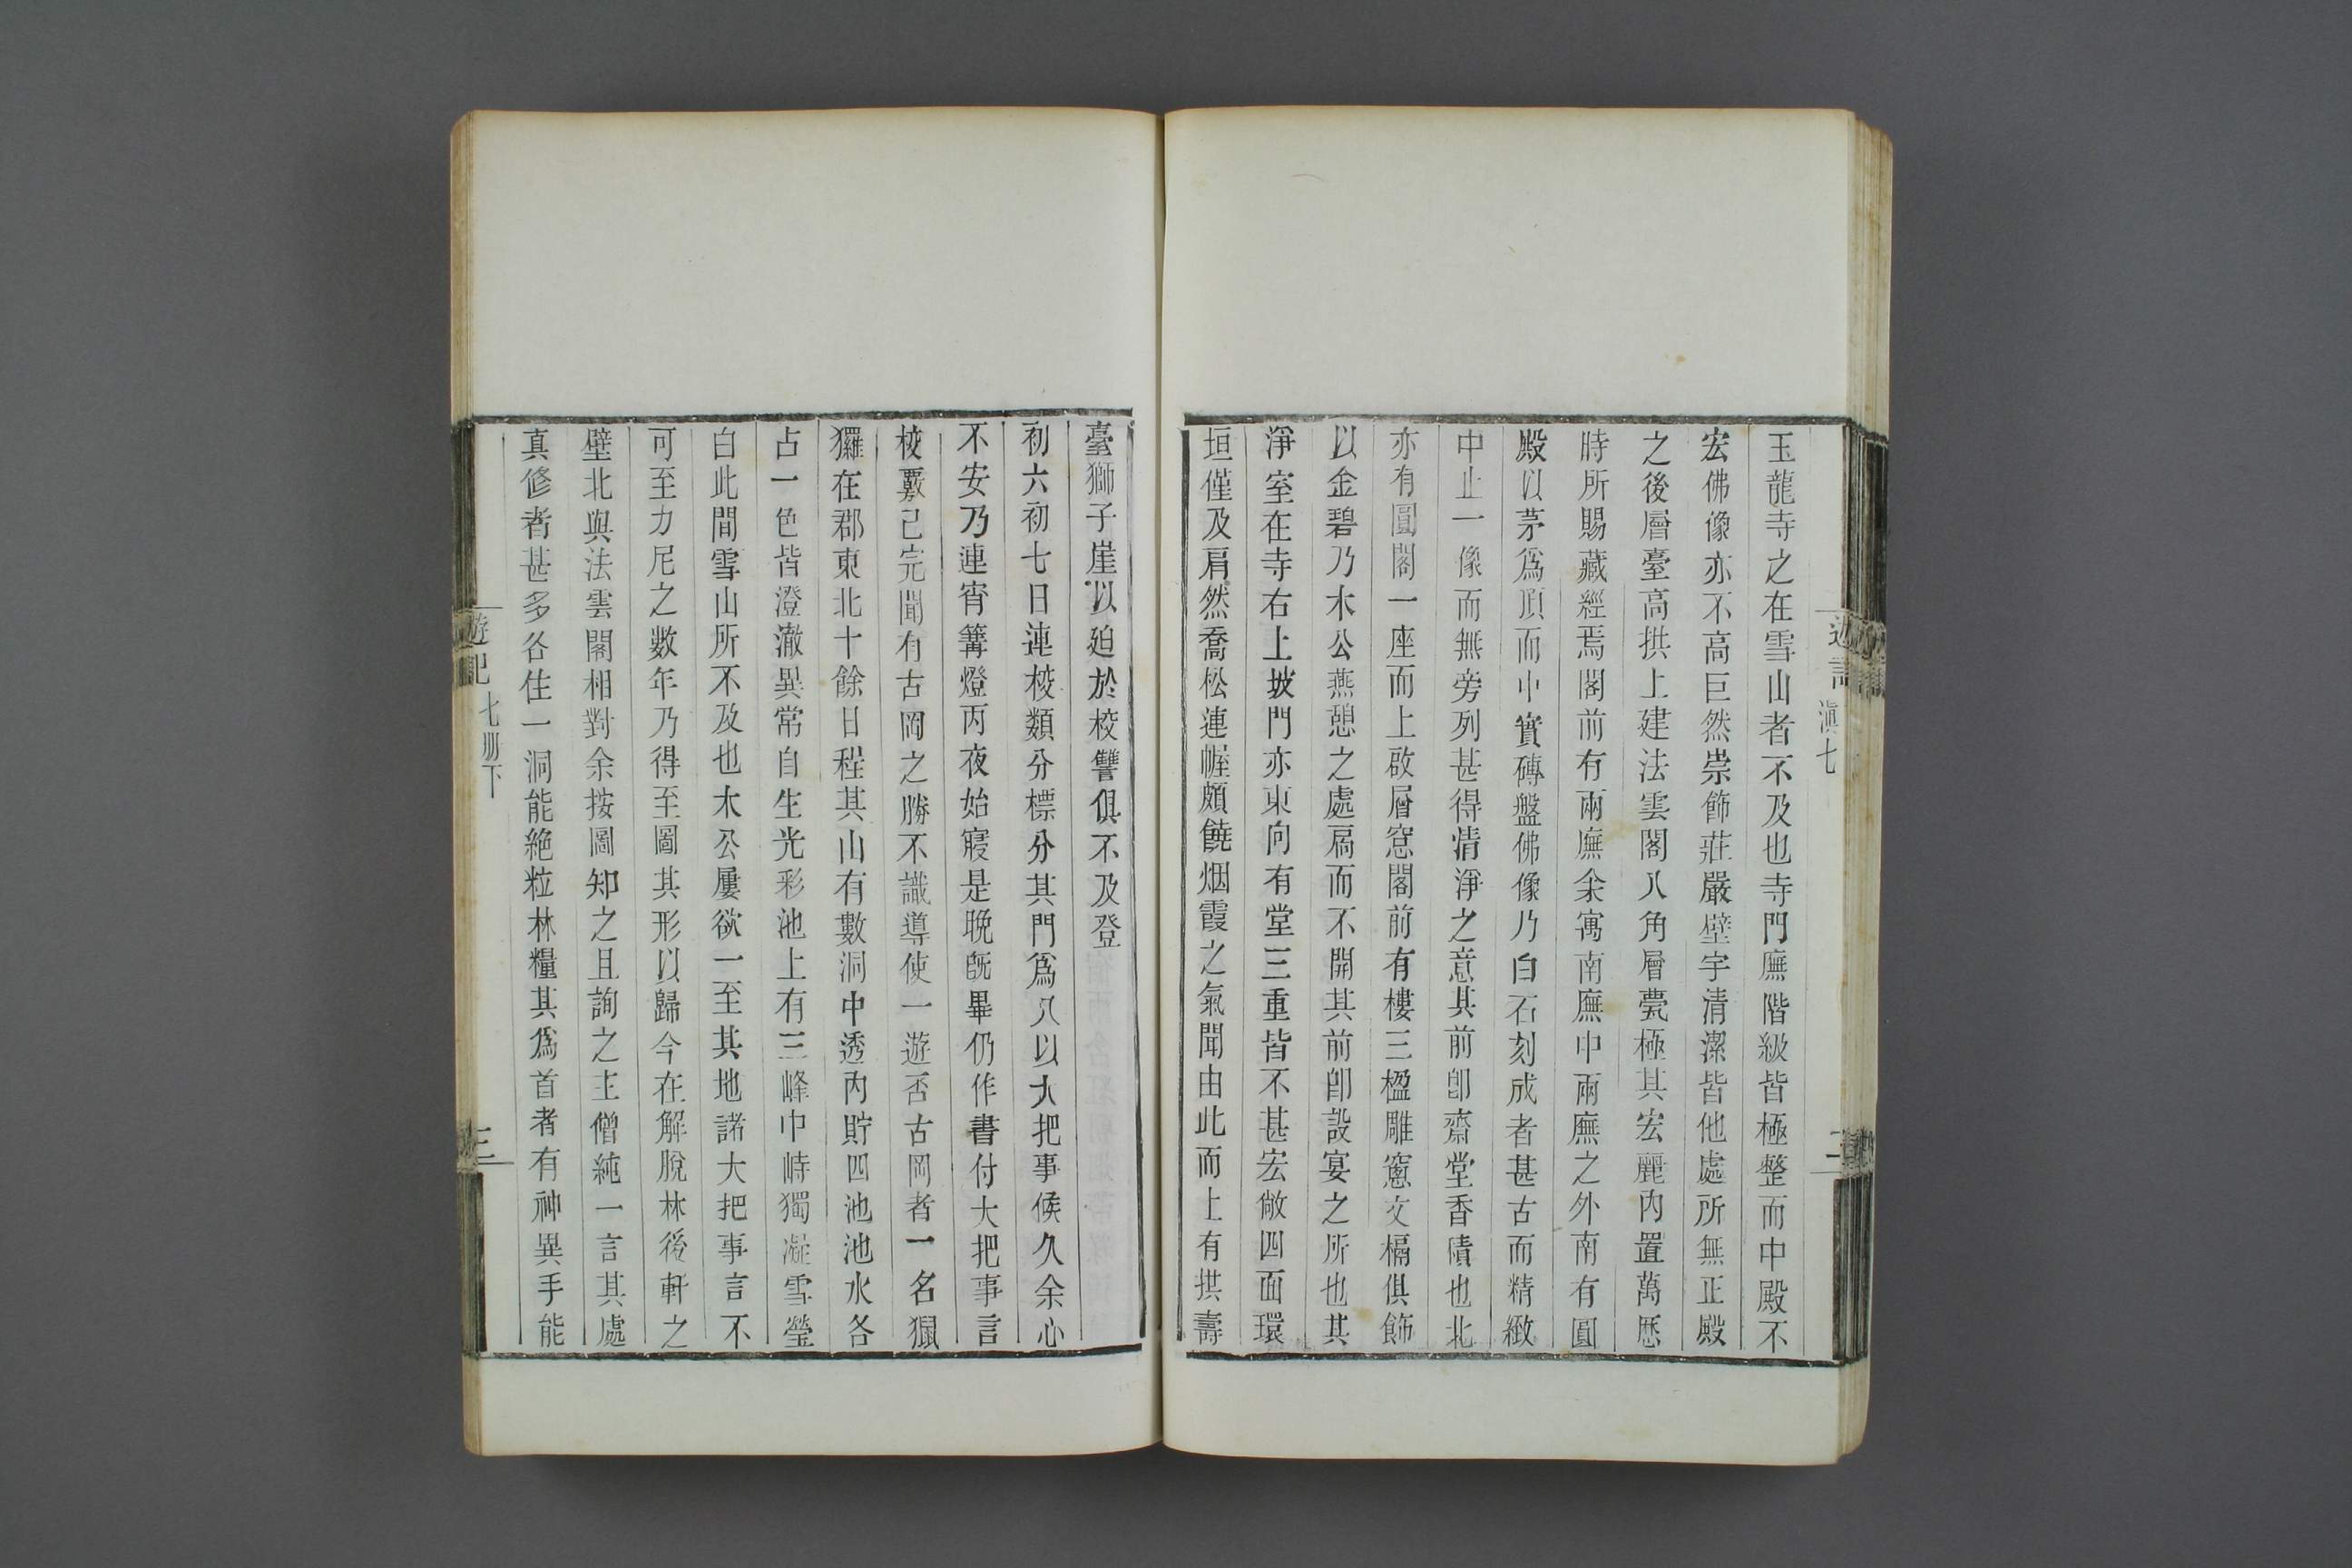 玉龍寺之在雪山者不及也寺門廡階級皆極整而中殿不
宏佛像亦不高巨然崇飾莊嚴壁宇清潔皆他處所無正殿
之後層臺高拱上建法雲閣八角層甍極其宏麗內置萬厯
時所賜藏經焉閣前有兩廡余寓南廡中兩廡之外南有圓
殿以茅爲頂而中實磚盤佛像乃白石刻成者甚古而精緻
中止一像而無旁列甚得清淨之意其前卽齋堂香積也北
亦有圓閣一座而上啟層窓閣前有樓三楹雕窻文槅俱飾
以金碧乃木公燕憩之處扃而不開其前卽設宴之所也其
淨室在寺右上坡門亦東向有堂三重皆不甚宏敞四面環
垣僅及肩然喬松連幄頗饒烟霞之氣聞由此而上有拱壽
臺獅子崖以廹於校讐俱不及登
初六初七日連校類分標分其門爲八以大把事候久余心
不安乃連宵篝燈丙夜始寢是晚旣畢仍作書付大把事言
校覈已完聞有古岡之勝不識導使一遊否古岡者一名㺐
玀在郡東北十餘日程其山有數洞中透內貯四池池水各
占一色皆澄澈異常自生光彩池上有三峰中峙獨凝雪瑩
白此間雪山所不及也木公屢欲一至其地諸大把事言不
可至力尼之數年乃得至圖其形以歸今在解脫林後軒之
壁北與法雲閣相對余按圖知之且詢之主僧純一言其處
真修者甚多各住一洞能絶粒休糧其爲首者有神異手能
遊記 七册下
三
滇七